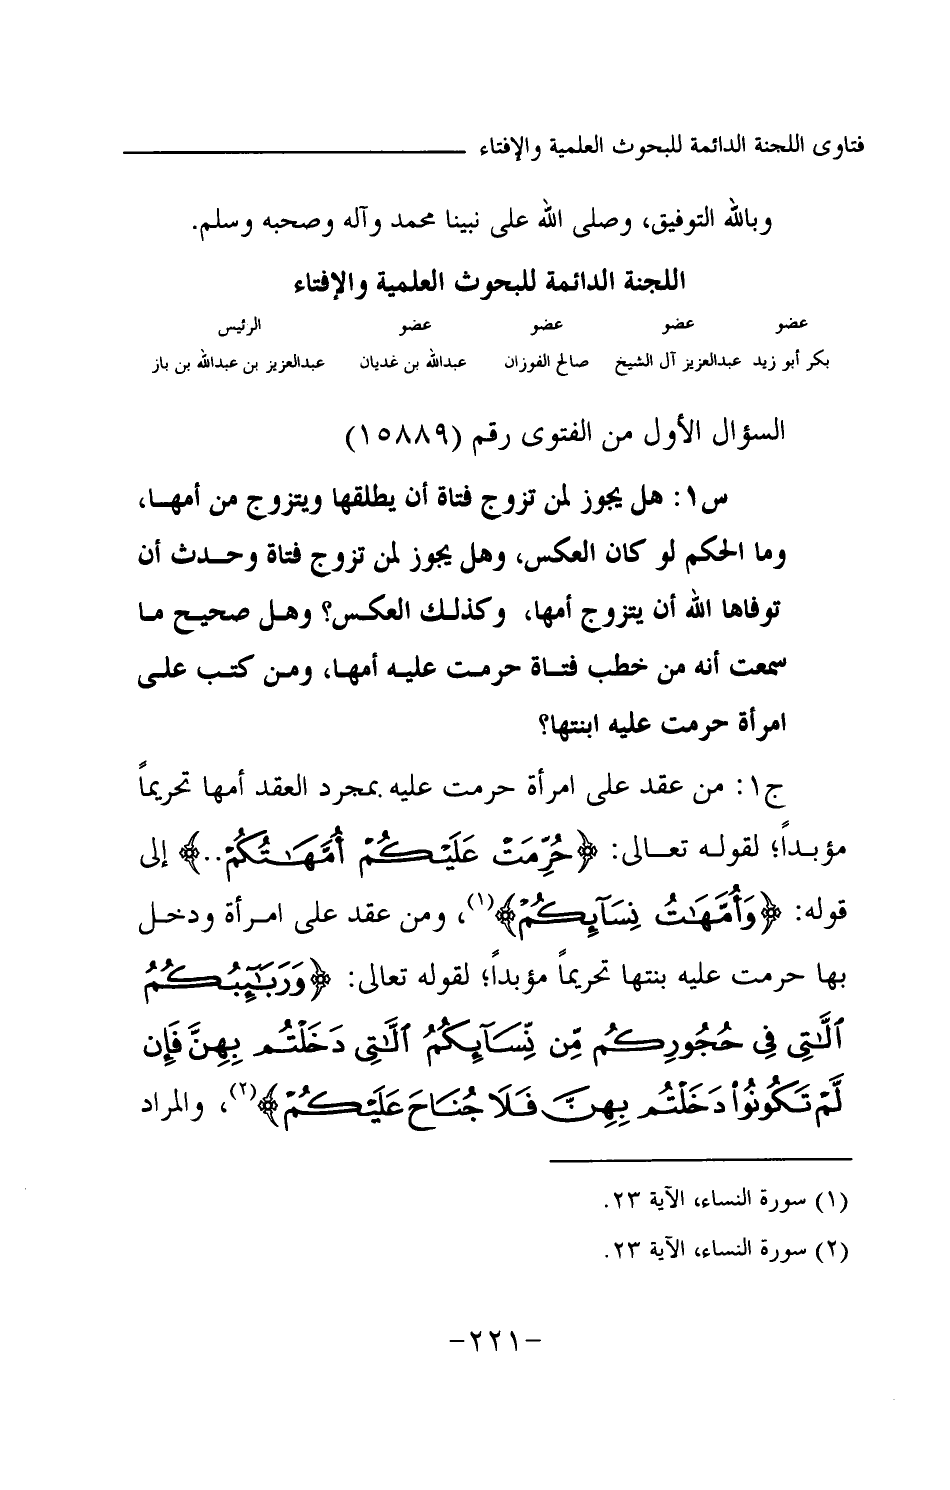 فتاوى اللجنة الدائمة للبحوث العلمية والإفتاء
وبالله التوفيق، وصلى الله على نبينا محمد وآله وصحبه وسلم.
اللجنة الدائمة للبحوث العلمية والإفتاء
عضو عضو عضو عضو الرئيس
بكر أبو زيد عبدالعزيز آل الشيخ صالح الفوزان عبدالله بن غديان عبدالعزيز بن عبدالله بن باز
السؤال الأول من الفتوى رقم (١٥٨٨٩)
س١: هل يجوز لمن تزوج فتاة أن يطلقها ويتزوج من أمها،
وما الحكم لو كان العكس، وهل يجوز لمن تزوج فتاة وحدث أن
توفاها الله أن يتزوج أمها، وكذلك العكس؟ وهل صحيح ما
سمعت أنه من خطب فتاة حرمت عليه أمها، ومن كتب على
امرأة حرمت عليه ابنتها؟
ج١: من عقد على امرأة حرمت عليه بمجرد العقد أمها تحريماً
مؤبداً؛ لقوله تعالى: ﴿حُرِّمَتْ عَلَيْكُمْ أُمَّهَٰتُكُمْ..﴾ إلى
قوله: ﴿وَأُمَّهَٰتُ نِسَآئِكُمْ﴾(١)، ومن عقد على امرأة ودخل
بها حرمت عليه بنتها تحريماً مؤبداً؛ لقوله تعالى: ﴿وَرَبَٰٓئِبُكُمُ
ٱلَّٰتِى فِى حُجُورِكُم مِّن نِّسَآئِكُمُ ٱلَّٰتِى دَخَلْتُم بِهِنَّ فَإِن
لَّمْ تَكُونُوا۟ دَخَلْتُم بِهِنَّ فَلَا جُنَاحَ عَلَيْكُمْ﴾(٢)، والمراد
(١) سورة النساء، الآية ٢٣.
(٢) سورة النساء، الآية ٢٣.
-٢٢١-